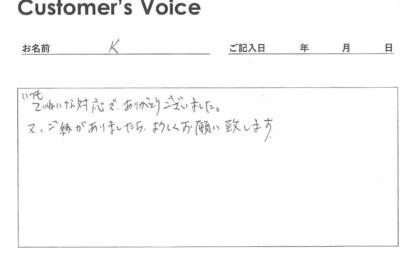 Customer's Voice
お名前 K ご記入日 年 月 日
いつも
ていねいな対応で、ありがとうございました。
又、ご縁がありましたら、よろしくお願い致します